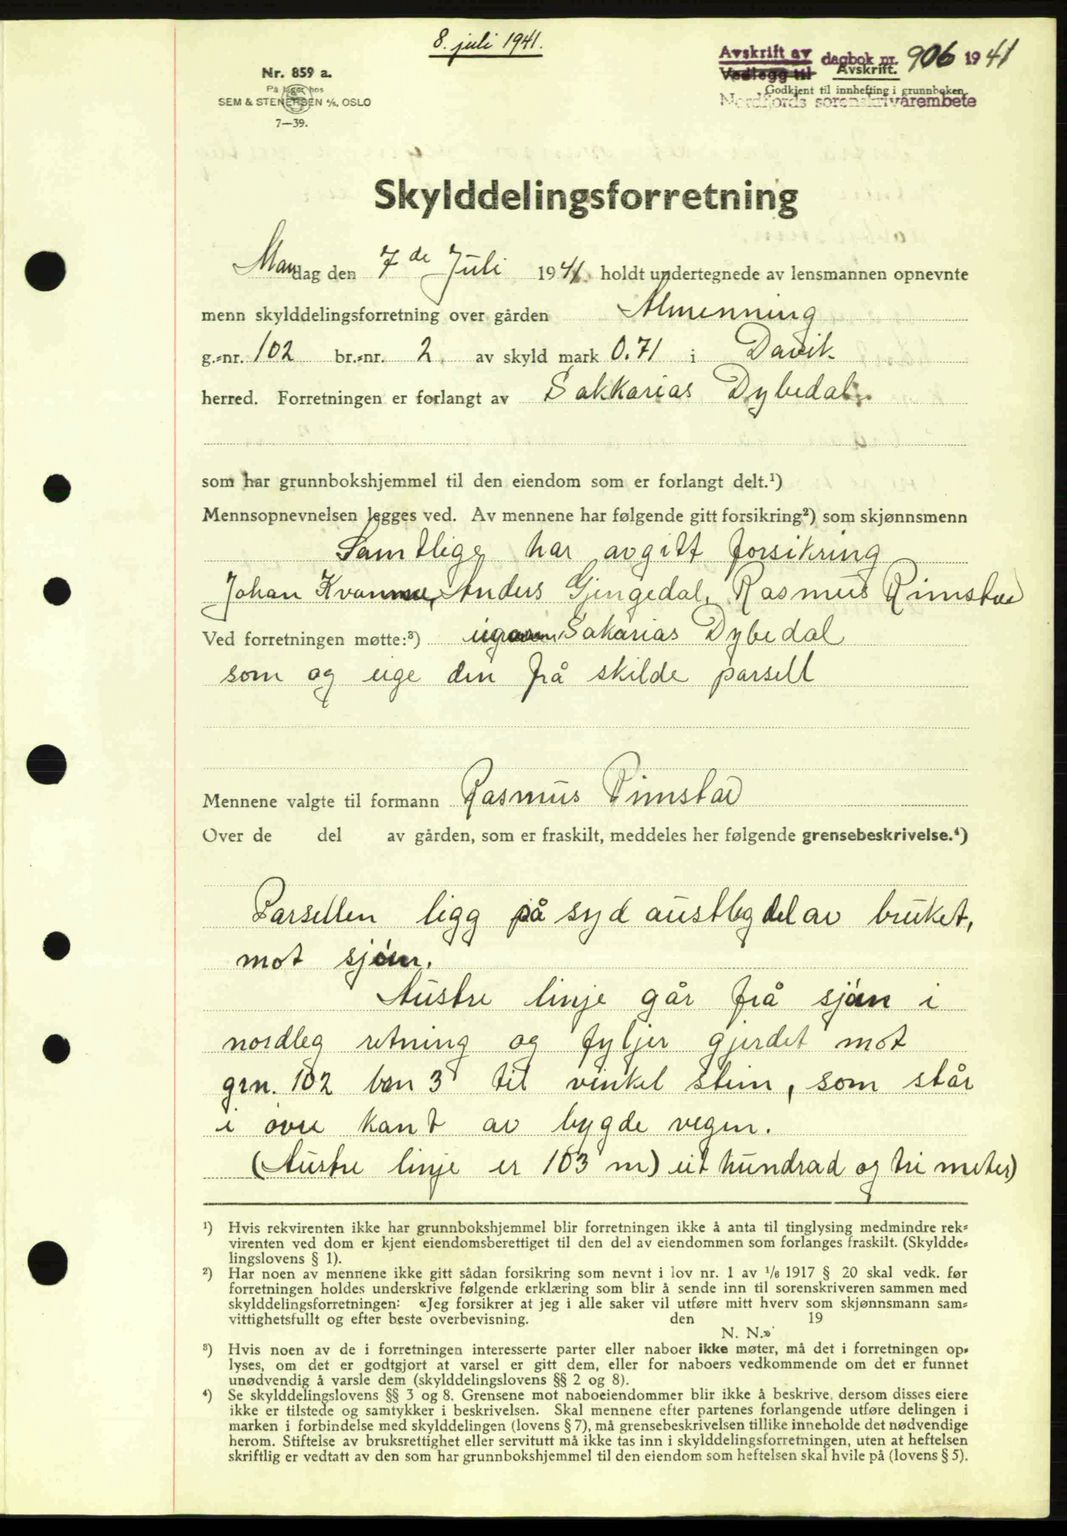 8. juli 1941.
Avskrift av
Vedlegg til dagbok nr. 906 1941
Avskrift.
Godkjent til innhefting i grunnboken
Nordfjords sorenskrivarembete
Nr. 859 a.
På lager hos
SEM & STENERSEN A/S, OSLO
7—39.
Skylddelingsforretning
Mandag den 7de Juli 1941 holdt undertegnede av lensmannen opnevnte
menn skylddelingsforretning over gården Almenning
g.-nr. 102 br.-nr. 2 av skyld mark 0.71 i Davik
herred. Forretningen er forlangt av Sakkarias Dybedal.
som har grunnbokshjemmel til den eiendom som er forlangt delt.¹)
Mennsopnevnelsen legges ved. Av mennene har følgende gitt forsikring²) som skjønnsmenn
Samtlige har avgitt forsikring
Johan Kvamme, Anders Gjengedal, Rasmus Rimstad
Ved forretningen møtte:³) Sakarias Dybedal
som og eige den frå skilde parsell
Mennene valgte til formann Rasmus Rimstad
Over de del av gården, som er fraskilt, meddeles her følgende grensebeskrivelse.⁴)
Parsellen ligg på syd austleg del av bruket,
mot sjøen.
Austre linje går frå sjøen i
nordleg retning og fyljer gjerdet mot
grn. 102 brn 3 til vinkel stein, som står
i øvre kant av bygde vegen.
(Austre linje er 103 m) eit hundrad og tri meter)
¹) Hvis rekvirenten ikke har grunnbokshjemmel blir forretningen ikke å anta til tinglysing medmindre rek-
virenten ved dom er kjent eiendomsberettiget til den del av eiendommen som forlanges fraskilt. (Skyldde-
lingslovens § 1).
²) Har noen av mennene ikke gitt sådan forsikring som nevnt i lov nr. 1 av 1/6 1917 § 20 skal vedk. før
forretningen holdes underskrive følgende erklæring som blir å sende inn til sorenskriveren sammen med
skylddelingsforretningen: «Jeg forsikrer at jeg i alle saker vil utføre mitt hverv som skjønnsmann sam-
vittighetsfullt og efter beste overbevisning. den 19
N. N.»
³) Hvis noen av de i forretningen interesserte parter eller naboer ikke møter, må det i forretningen op-
lyses, om det er godtgjort at varsel er gitt dem, eller for naboers vedkommende om det er funnet
unødvendig å varsle dem (skylddelingslovens §§ 2 og 8).
⁴) Se skylddelingslovens §§ 3 og 8. Grensene mot naboeiendommer blir ikke å beskrive, dersom disses eiere
ikke er tilstede og samtykker i beskrivelsen. Skal mennene efter partenes forlangende utføre delingen i
marken i forbindelse med skylddelingen (lovens § 7), må grensebeskrivelsen tillike inneholde det nødvendige
herom. Stiftelse av bruksrettighet eller servitutt må ikke tas inn i skylddelingsforretningen, uten at heftelsen
skriftlig er vedtatt av den som har grunnbokshjemmel til den eiendom som heftelsen skal hvile på (lovens § 5).